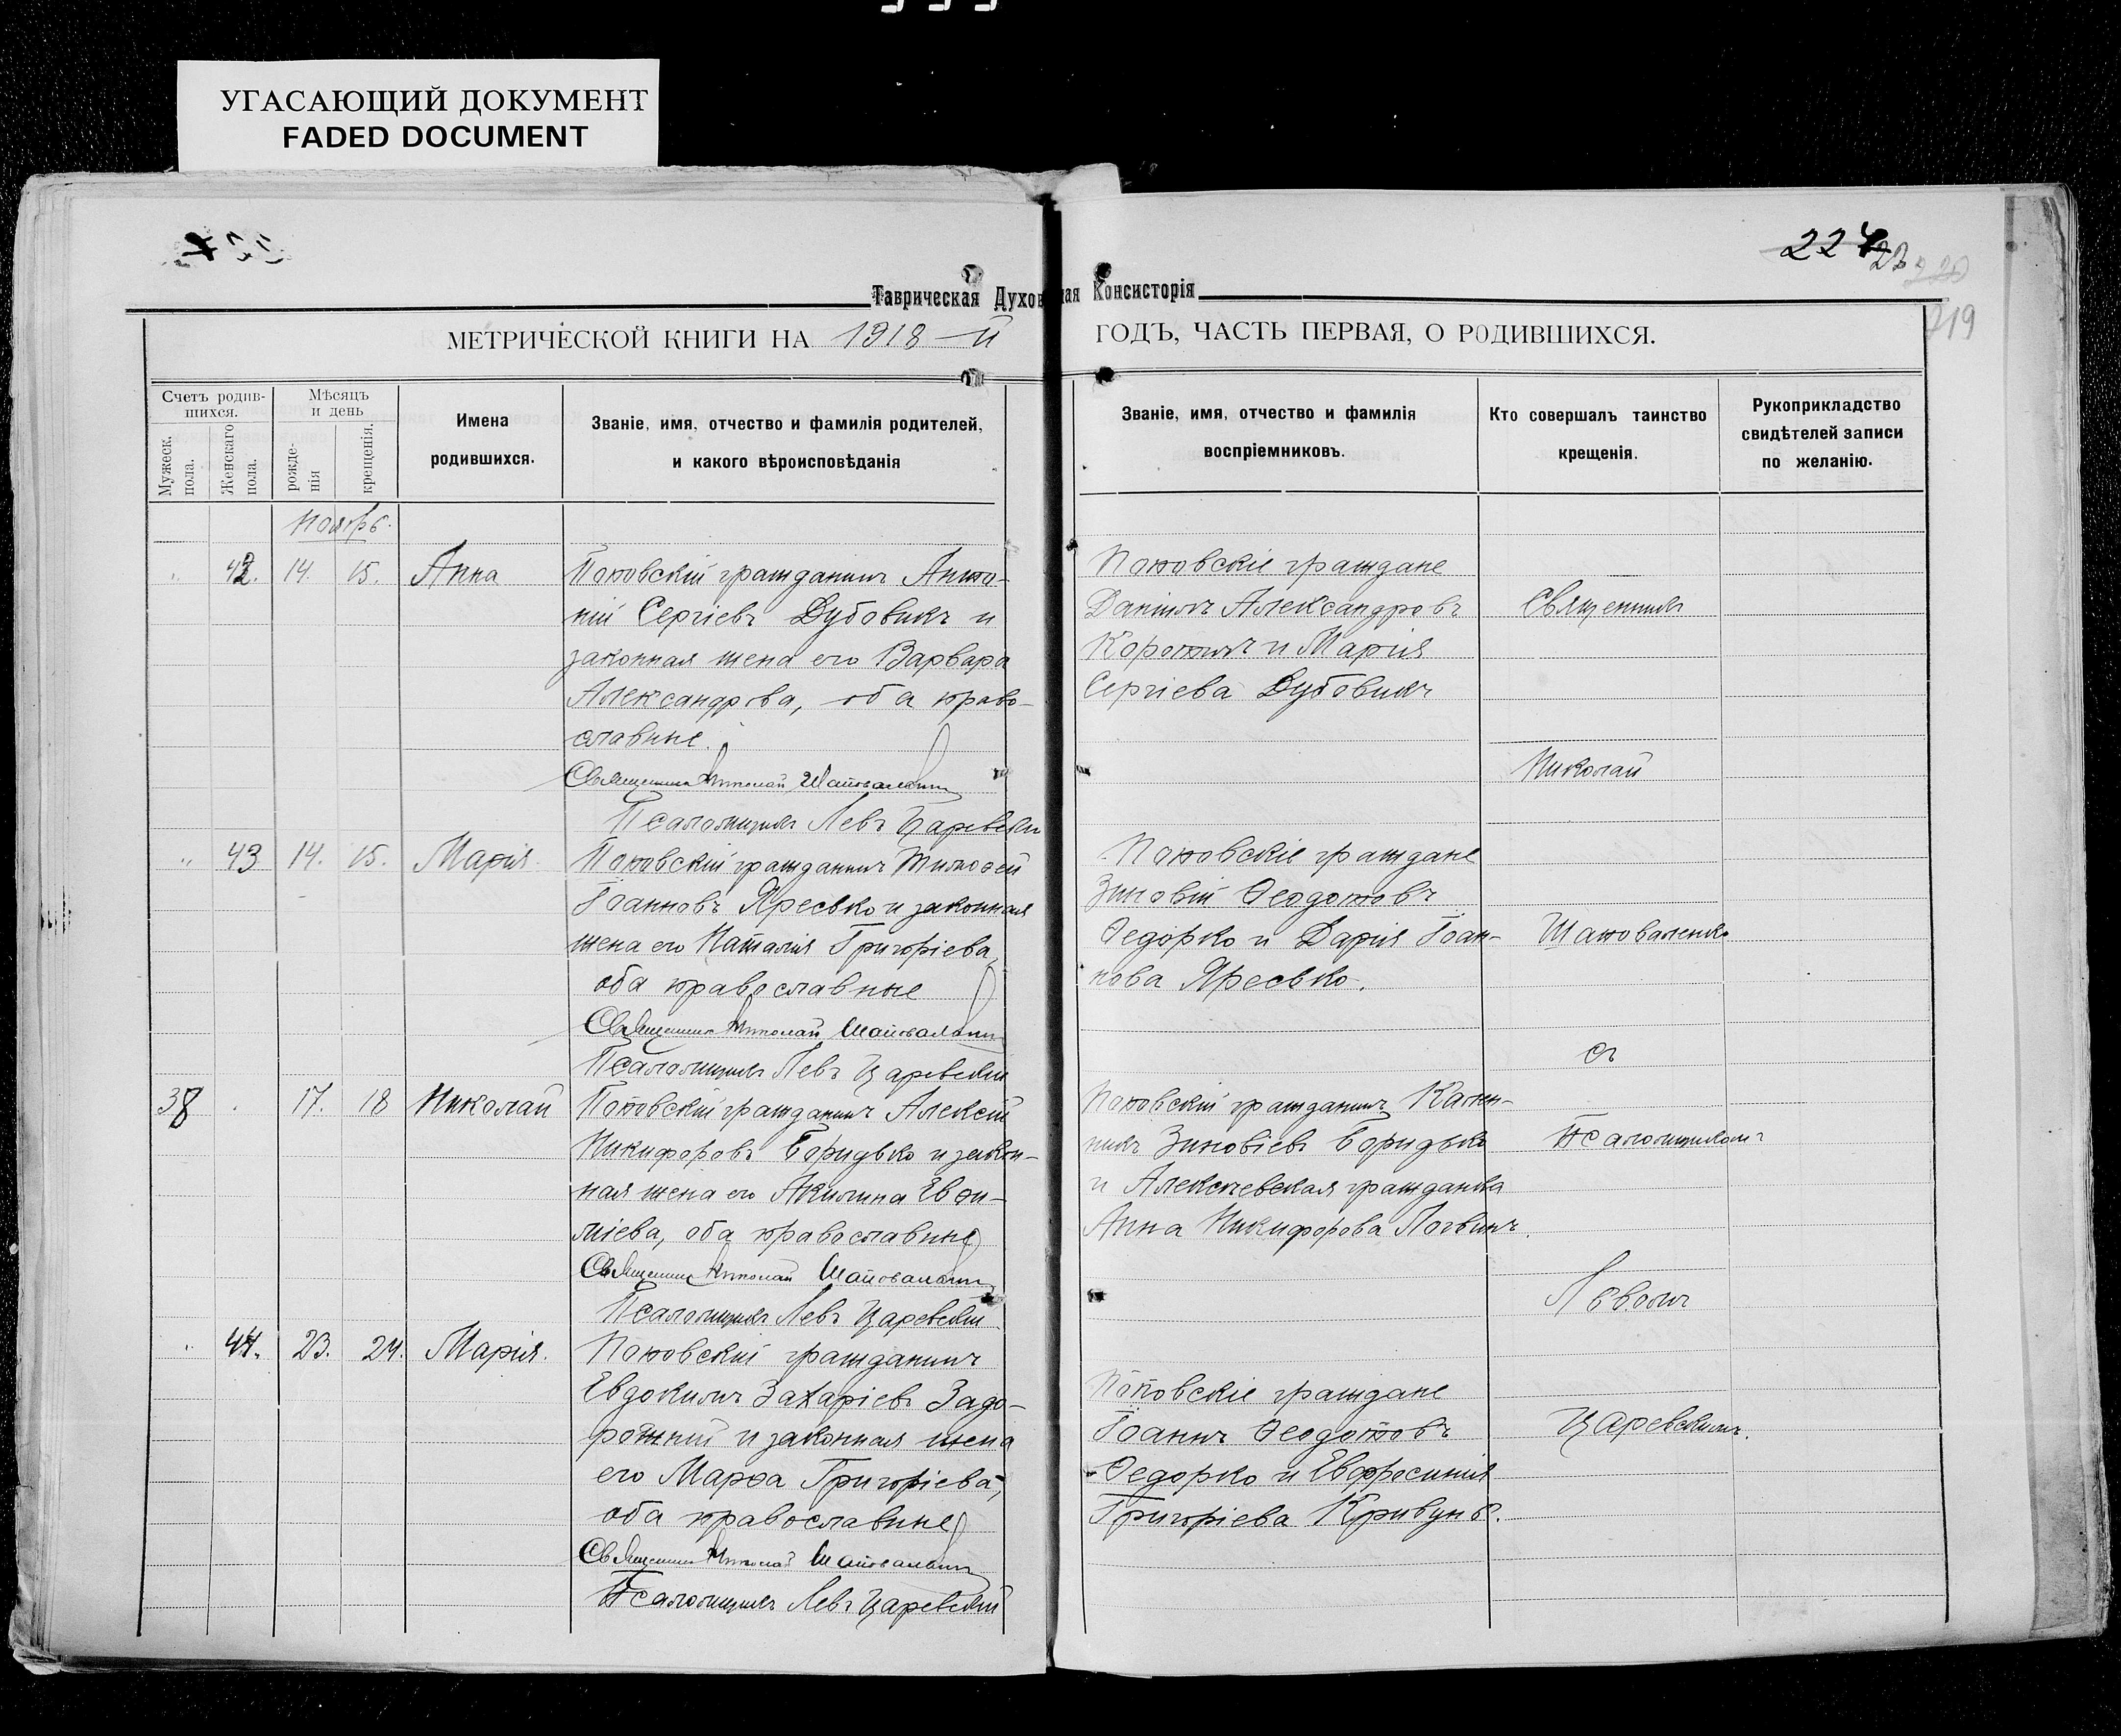 УГАСАЮЩИЙ ДОКУМЕНТ
FADED DOCUMENT
224
219
Таврическая Духовная Консисторія
МЕТРИЧЕСКОЙ КНИГИ НА 1918-й ГОДЪ, ЧАСТЬ ПЕРВАЯ, О РОДИВШИХСЯ.
Счетъ родив-
шихся.
Мужеск.
пола.
Женскаго
пола.
Мѣсяцъ
и день
рожде-
нія
крещенія.
Имена
родившихся.
Званіе, имя, отчество и фамилія родителей,
и какого вѣроисповѣданія
Званіе, имя, отчество и фамилія
воспріемниковъ.
Кто совершалъ таинство
крещенія.
Рукоприкладство
свидѣтелей записи
по желанію.
Ноябрь.
" 42. 14. 15. Анна
Поповскій гражданинъ Анто-
ній Сергіевъ Дубовикъ и
законная жена его Варвара
Александрова, оба право-
славные.
Священникъ Николай Шаповаленко
Псаломщикъ Левъ Царевскій
Поповскіе граждане
Даніилъ Александровъ
и Марія
Сергіева Дубовикъ
" 43 14. 15. Марія
Поповскій гражданинъ Тимофей
Іоанновъ Яресько и законная
жена его Наталія Григоріева,
оба православные
Священникъ Николай Шаповаленко
Псаломщикъ Левъ Царевскій
Поповскіе граждане
Зиновій Ѳеодотовъ
Ѳедорко и Дарія Іоан-
нова Яресько.
38 . 17. 18 Николай
Поповскій гражданинъ Алексій
Никифоровъ Боридько и закон-
ная жена его Акилина Евѳи-
міева, оба православные
Священникъ Николай Шаповаленко
Псаломщикъ Левъ Царевскій
Поповскій гражданинъ Калин-
никъ Зиновіевъ Боридько
и Алексѣевская гражданка
Анна Никифорова Логвинъ.
" 44. 23. 24. Марія.
Поповскій гражданинъ
Евдокимъ Захаріевъ Задо-
рожній и законная жена
его Марѳа Григоріева,
оба православные
Священникъ Николай Шаповаленко
Псаломщикъ Левъ Царевскій
Поповскіе граждане
Іоаннъ Ѳеодотовъ
Ѳедорко и Евфросинія
Григоріева Кривунъ.
Священникъ
Николай
Шаповаленко
съ
Псаломщикомъ
Львомъ
Царевскимъ.